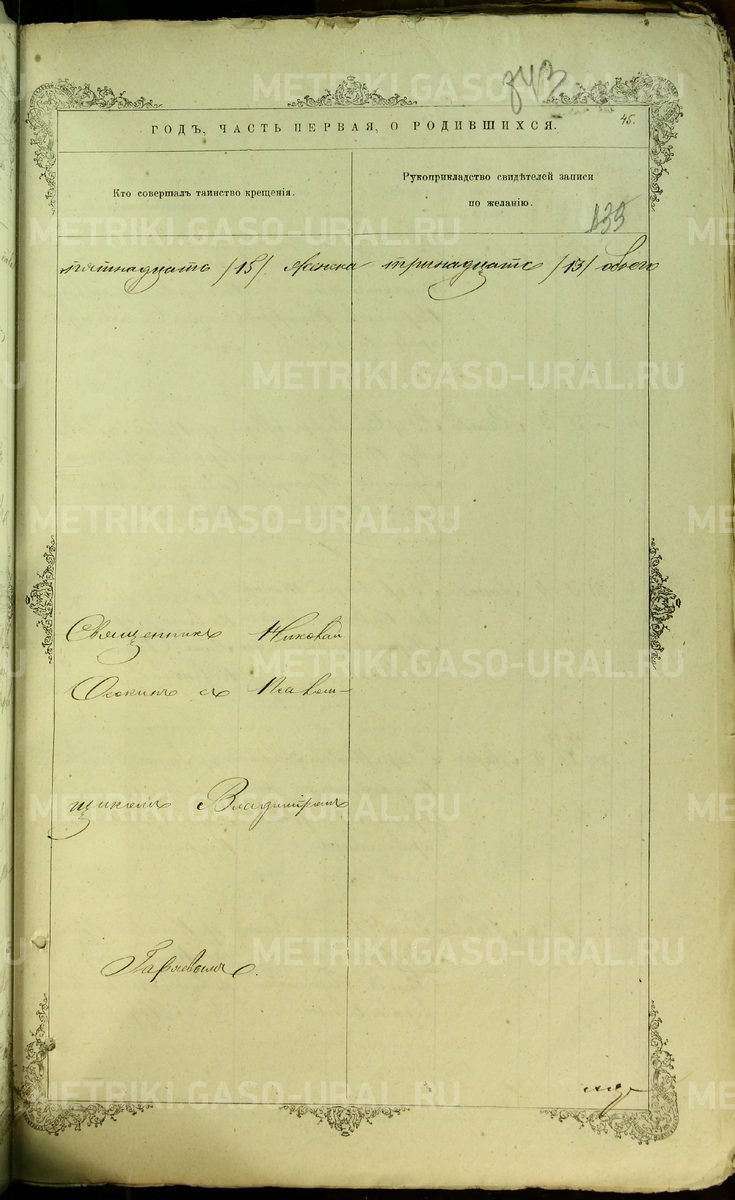 METRIKI.GASO-URAL.RU
343
45.
ГОДЪ, ЧАСТЬ ПЕРВАЯ, О РОДИВШИХСЯ.
Кто совершалъ таинство крещенія.
Рукоприкладство свидѣтелей записи
по желанію.
135
пятнадцать /15/. женска тринадцать /13/ обоего
METRIKI.GASO-URAL.RU
METRIKI.GASO-URAL.RU
METRIKI.GASO-URAL.RU
Священникъ Николай
METRIKI.GASO-URAL.RU
Оскинъ съ Псалом-
щикомъ Владиміромъ
METRIKI.GASO-URAL.RU
METRIKI.GASO-URAL.RU
METRIKI.GASO-URAL.RU